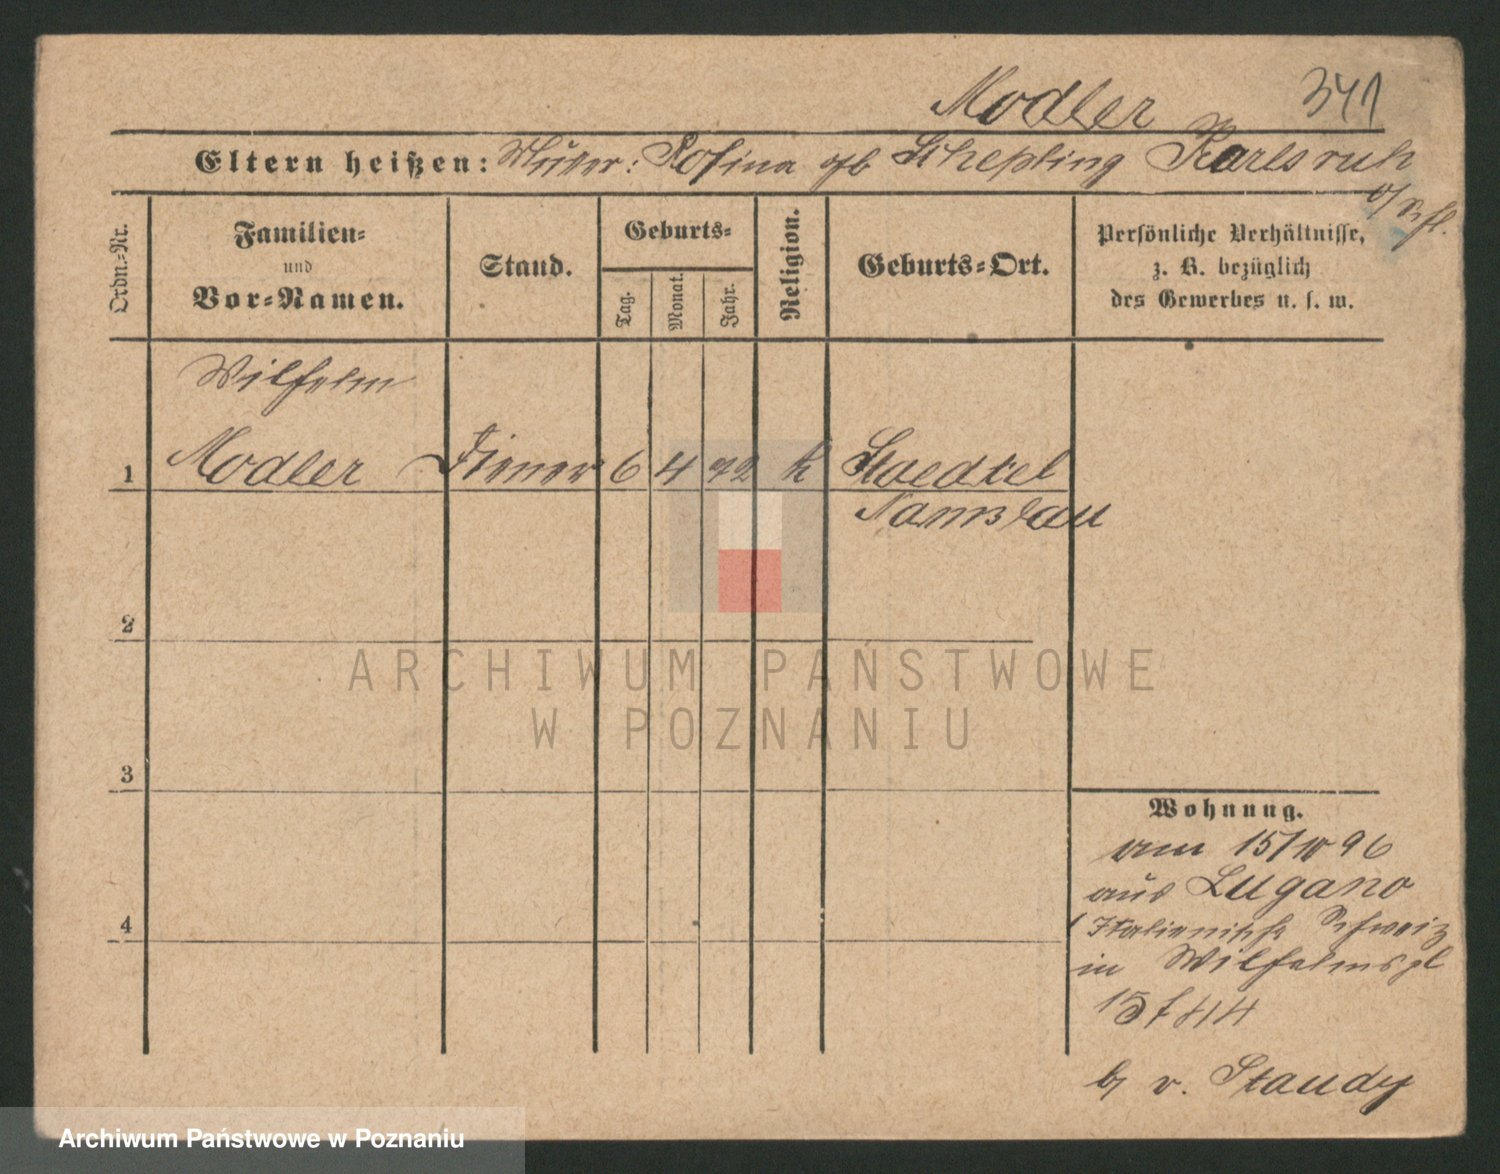 Modler 341
Eltern heißen: Mutter: Rosina gb Schepling Karlsruh
o/Schl.
Ordn.-Nr.
Familien-
und
Vor-Namen.
Stand.
Geburts-
Tag.
Monat.
Jahr.
Religion.
Geburts-Ort.
Persönliche Verhältnisse,
z. B. bezüglich
des Gewerbes u. s. w.
Wilhelm
1 Modler Diener 6 4 72 k Staedtel
Namslau
2
3
4
Wohnung.
am 15/IV 96
aus Lugano
Italienische Schweiz
in Wilhelmspl
15
b/ v. Staudy
ARCHIWUM PAŃSTWOWE
W POZNANIU
Archiwum Państwowe w Poznaniu